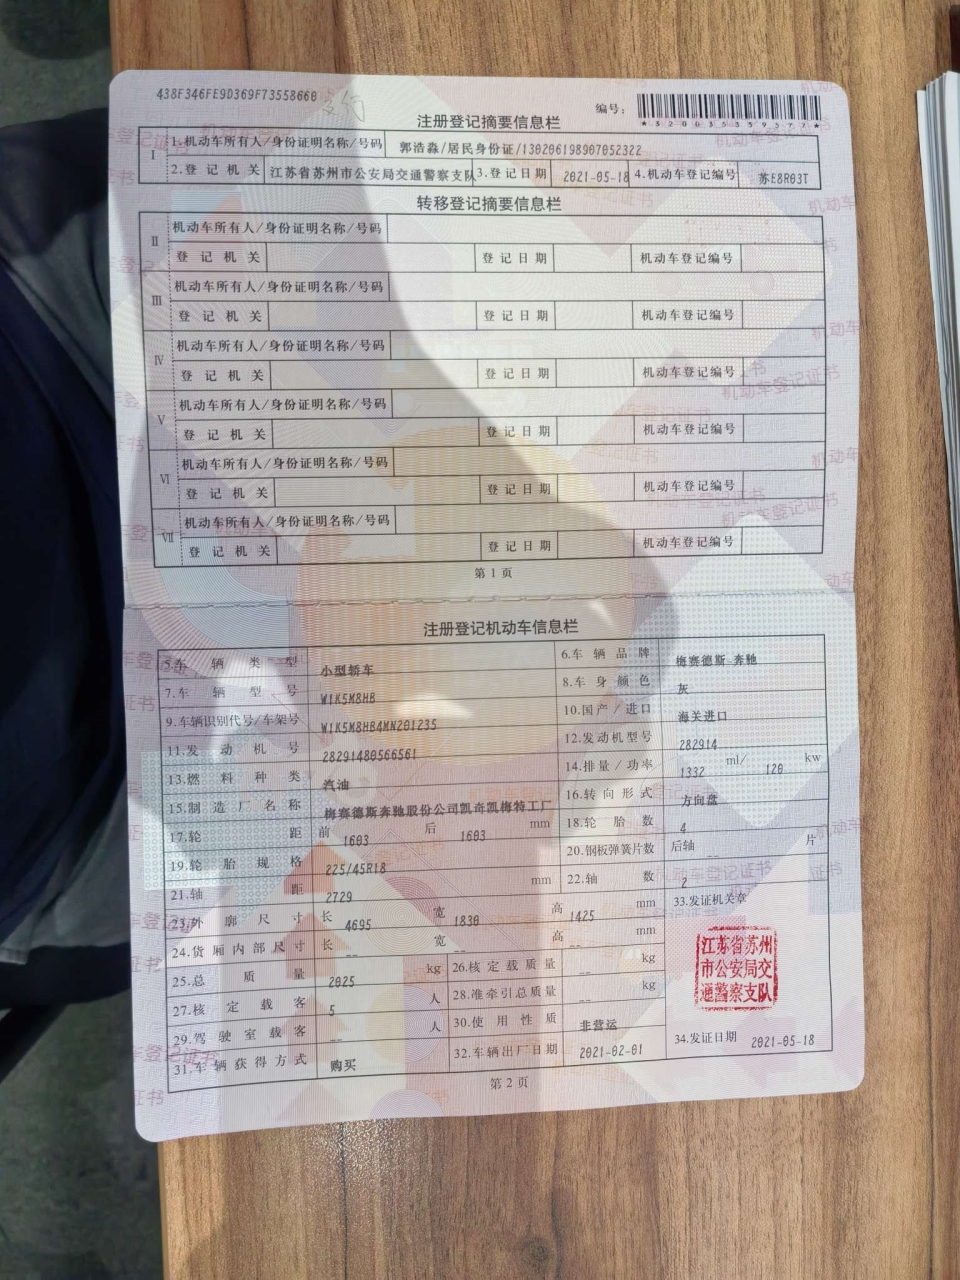 438F346FE9D369F73558660
编号：
*320035359577*
注册登记摘要信息栏
I 1.机动车所有人/身份证明名称/号码 郭浩淼/居民身份证/130206198907052322
2.登记机关 江苏省苏州市公安局交通警察支队 3.登记日期 2021-05-18 4.机动车登记编号 苏E8R03T
转移登记摘要信息栏
II 机动车所有人/身份证明名称/号码
登记机关 登记日期 机动车登记编号
III 机动车所有人/身份证明名称/号码
登记机关 登记日期 机动车登记编号
IV 机动车所有人/身份证明名称/号码
登记机关 登记日期 机动车登记编号
V 机动车所有人/身份证明名称/号码
登记机关 登记日期 机动车登记编号
VI 机动车所有人/身份证明名称/号码
登记机关 登记日期 机动车登记编号
VII 机动车所有人/身份证明名称/号码
登记机关 登记日期 机动车登记编号
第1页
注册登记机动车信息栏
5.车辆类型 小型轿车 6.车辆品牌 梅赛德斯-奔驰
7.车辆型号 W1K5M8HB 8.车身颜色 灰
9.车辆识别代号/车架号 W1K5M8HB4MN201235 10.国产/进口 海关进口
11.发动机号 28291480566561 12.发动机型号 282914
13.燃料种类 汽油 14.排量/功率 1332 ml/ 120 kw
15.制造厂名称 梅赛德斯奔驰股份公司凯奇凯梅特工厂 16.转向形式 方向盘
17.轮距 前 1603 后 1603 mm 18.轮胎数 4
19.轮胎规格 225/45R18 20.钢板弹簧片数 后轴 -- 片
21.轴距 2729 mm 22.轴数 2
23.外廓尺寸 长 4695 宽 1830 高 1425 mm 33.发证机关章
24.货厢内部尺寸 长 -- 宽 -- 高 -- mm
25.总质量 2025 kg 26.核定载质量 -- kg
27.核定载客 5 人 28.准牵引总质量 -- kg
29.驾驶室载客 -- 人 30.使用性质 非营运
31.车辆获得方式 购买 32.车辆出厂日期 2021-02-01 34.发证日期 2021-05-18
江苏省苏州
市公安局交
通警察支队
第2页